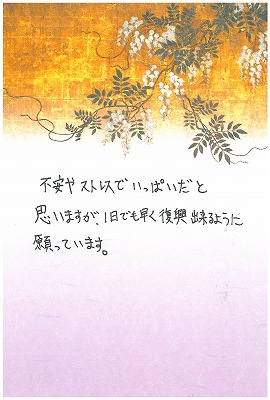 不安やストレスでいっぱいだと
思いますが、1日でも早く復興出来るように
願っています。